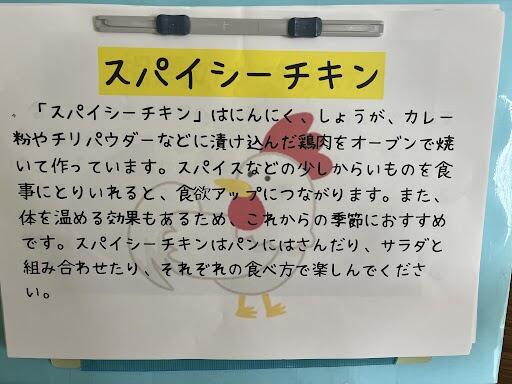 スパイシーチキン
「スパイシーチキン」はにんにく、しょうが、カレー
粉やチリパウダーなどに漬け込んだ鶏肉をオーブンで焼
いて作っています。スパイスなどの少しからいものを食
事にとりいれると、食欲アップにつながります。また、
体を温める効果もあるため、これからの季節におすすめ
です。スパイシーチキンはパンにはさんだり、サラダと
組み合わせたり、それぞれの食べ方で楽しんでくださ
い。